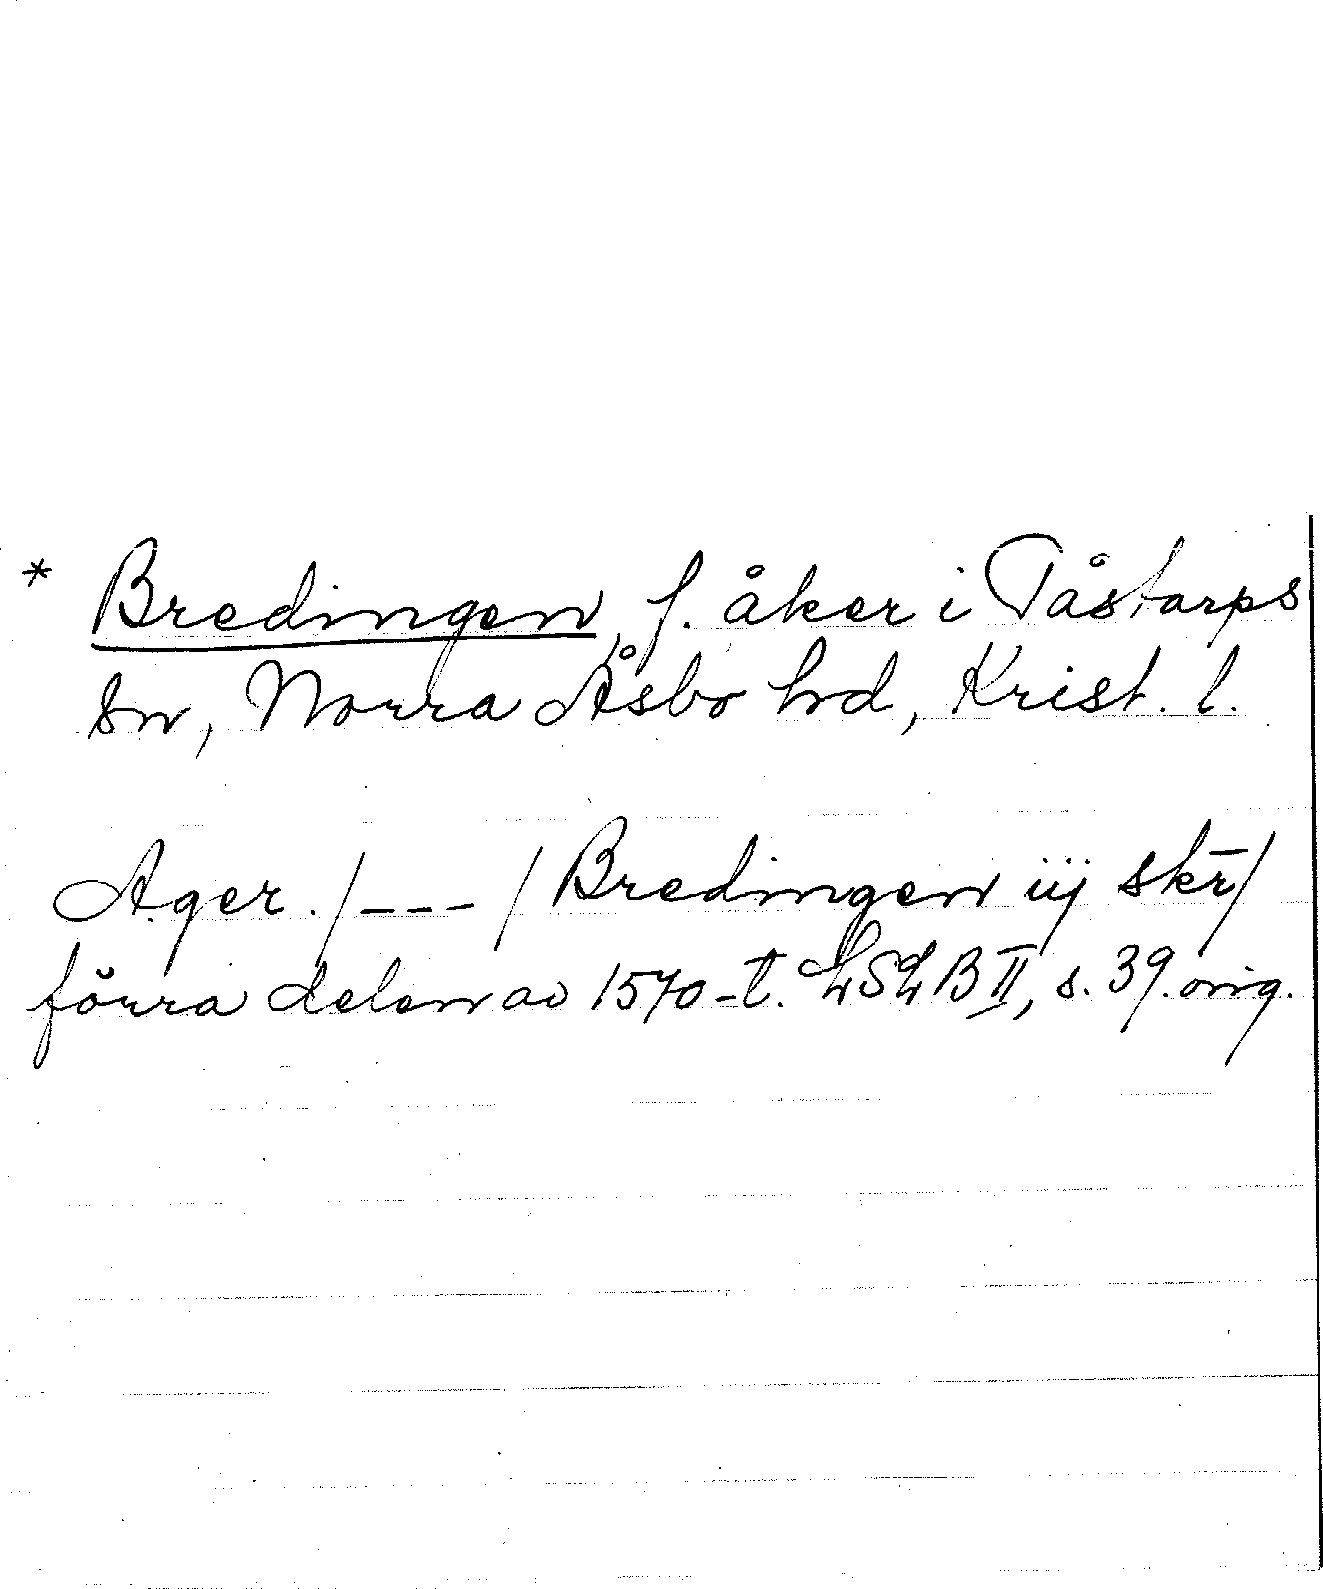 * Bredingen, f. åker i Tåstarps
sn, Norra Åsbo hd, Krist. l.
Ager. /---/ Bredingen iij skr̄/
förra delen av 1570-t. LSLB II, s. 39. orig.